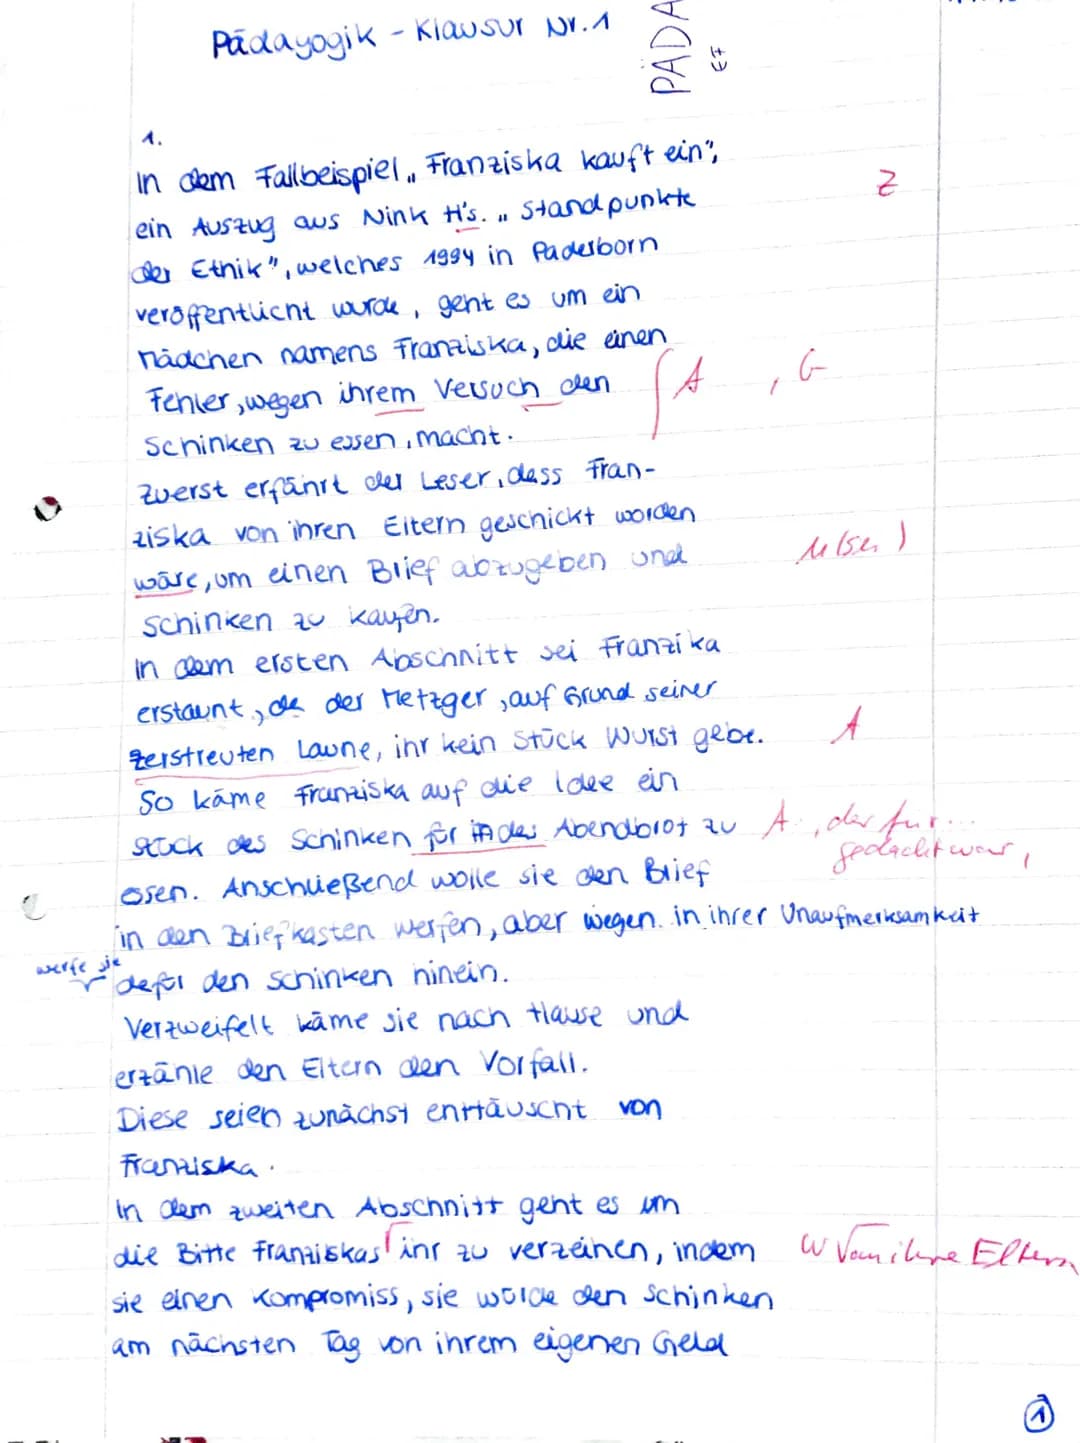 Pädagogik - Klausur Nr. 1
PÄDA
EF
1.
In dem Fallbeispiel „Franziska kauft ein",
ein Auszug aus Nink H's. „Standpunkte
Z
der Ethik", welches 1994 in Paderborn
veröffentlicht wurde, geht es um ein
Mädchen namens Franziska, die einen
Fehler, wegen ihrem Versuch den
A , G
Schinken zu essen, macht.
Zuerst erfährt der Leser, dass Fran-
ziska von ihren Eltern geschickt worden
wäre, um einen Brief abzugeben und
Schinken zu kaufen.
In dem ersten Abschnitt sei Franzika
erstaunt, da der Metzger, auf Grund seiner
zerstreuten Laune, ihr kein Stück Wurst gebe.
A
So käme Franziska auf die Idee ein
Stück des Schinken für das Abendbrot zu
A , der für...
gedacht war,
essen. Anschließend wolle sie den Brief
in den Briefkasten werfen, aber wegen in ihrer Unaufmerksamkeit
werfe sie
dafür den Schinken hinein.
Verzweifelt käme sie nach Hause und
erzähle den Eltern den Vorfall.
Diese seien zunächst enttäuscht von
Franziska.
In dem zweiten Abschnitt geht es um
die Bitte Franziskas ihr zu verzeihen, indem
W Γan ihre Eltern
sie einen Kompromiss, sie würde den Schinken
am nächsten Tag von ihrem eigenen Geld
1